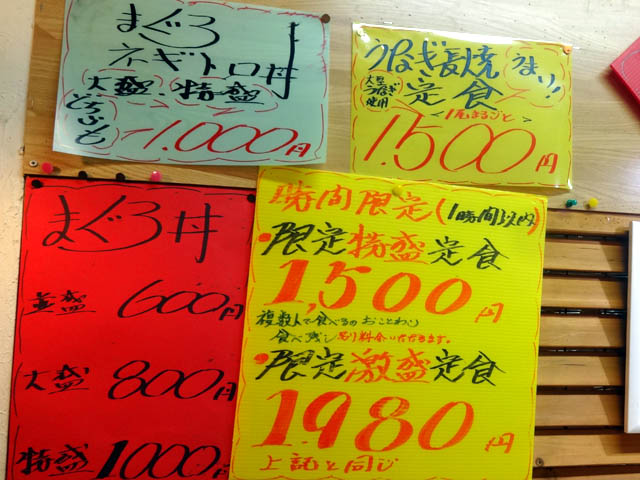 まぐろ
ネギトロ丼
大盛 特盛
どちらも
1,000円
うなぎ長焼
うまい!
大型
うなぎ
使用
定食
<1尾まるごと>
1,500円
まぐろ丼
並盛 600円
大盛 800円
特盛 1000円
時間限定(1時間以内)
・限定特盛定食
1,500円
複数人で食べるの おことわり
食べ残し 罰金いただきます。
・限定激盛定食
1980円
上記と同じ